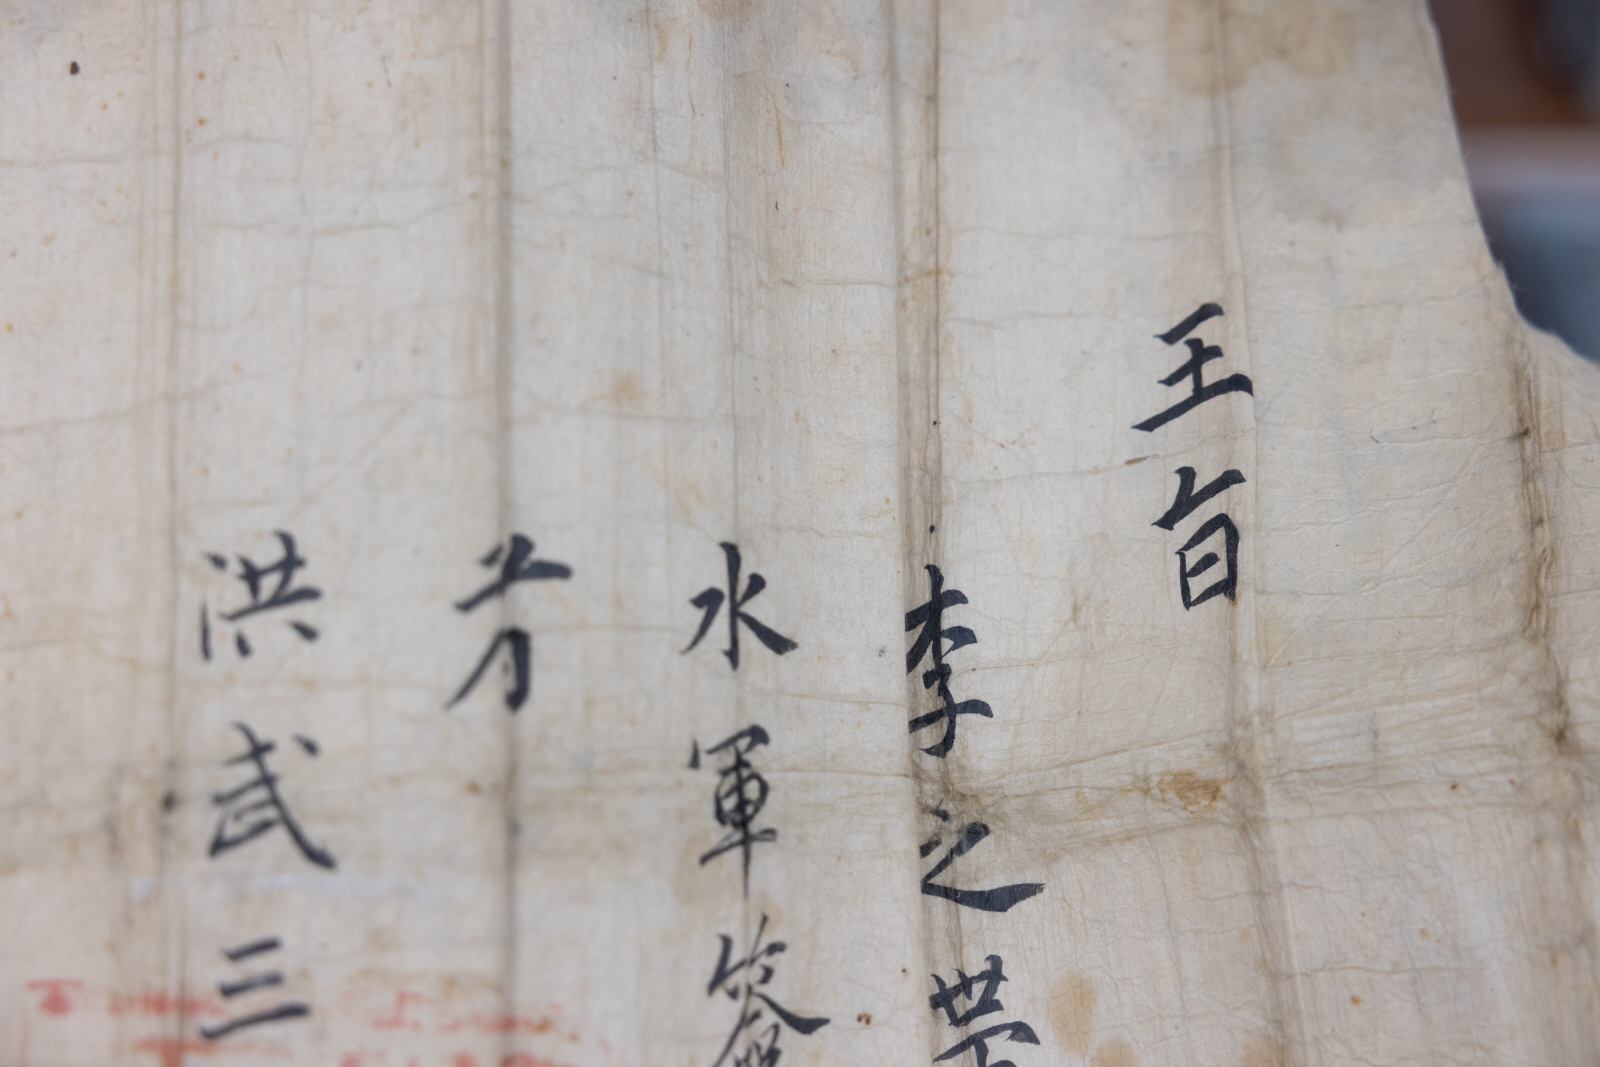 王旨
李之帶
水軍簽
者
洪武三